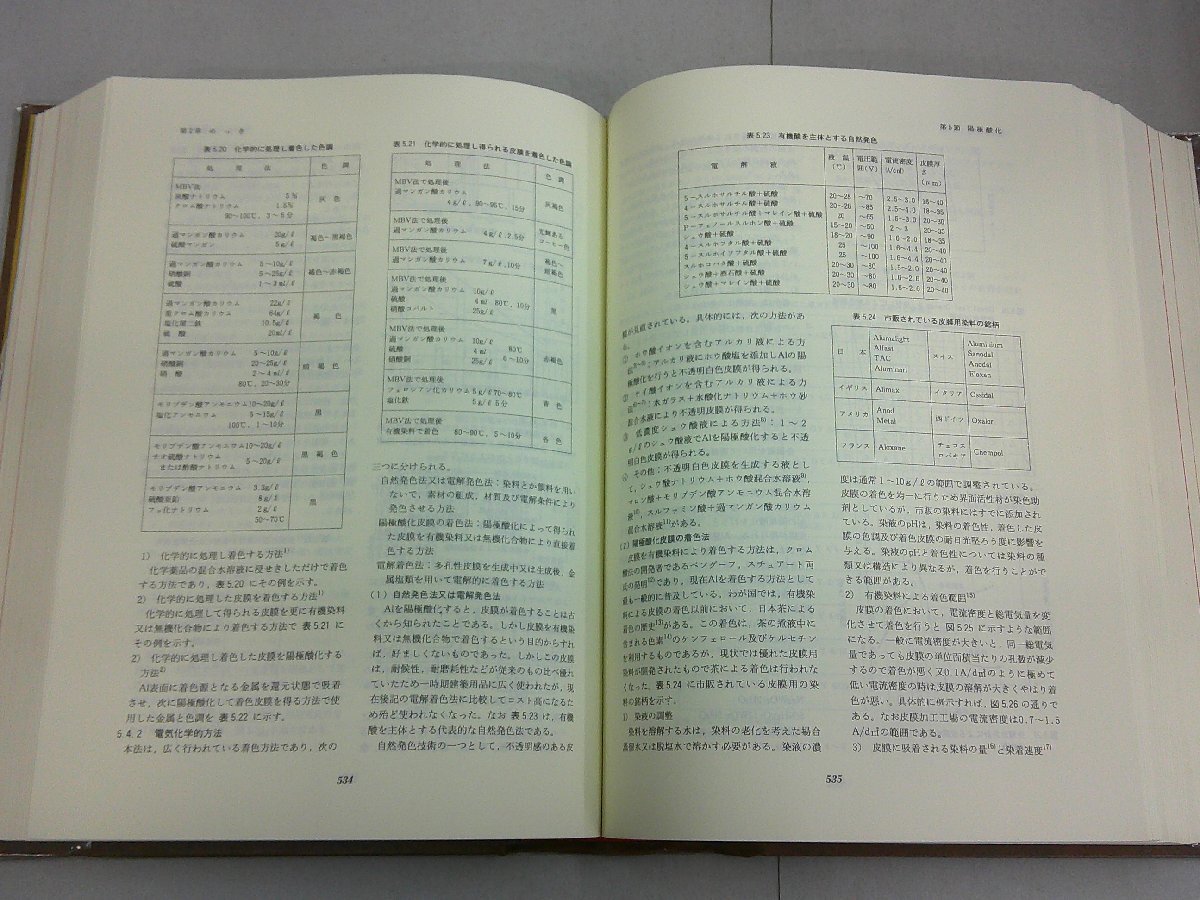 第2章 めっき
表5.20 化学的に処理し着色した色調
処理法 色調
MBV法
炭酸ナトリウム 5%
クロム酸ナトリウム 1.5% 灰色
90~100℃, 3~5分
過マンガン酸カリウム 20g/ℓ 褐色~黒褐色
硫酸マンガン 5g/ℓ
過マンガン酸カリウム 5~10g/ℓ
硝酸銅 5~25g/ℓ 褐色~赤褐色
硫酸 1~3ml/ℓ
過マンガン酸カリウム 22g/ℓ
重クロム酸カリウム 64g/ℓ 褐色
塩化第二鉄 10.5g/ℓ
硫酸 20ml/ℓ
過マンガン酸カリウム 5~10g/ℓ
硝酸銅 20~25g/ℓ 暗褐色
硝酸 2~4ml/ℓ
80℃, 20~30分
モリブデン酸アンモニウム10~20g/ℓ
塩化アンモニウム 5~15g/ℓ 黒
100℃, 1~10分
モリブデン酸アンモニウム10~20g/ℓ
チオ硫酸ナトリウム 5~20g/ℓ 黒褐色
または酢酸ナトリウム
モリブデン酸アンモニウム 3.3g/ℓ
硫酸亜鉛 8g/ℓ 黒
フッ化ナトリウム 2g/ℓ
50~70℃
1) 化学的に処理し着色する方法1)
化学薬品の混合水溶液に浸せきしただけで着色
する方法であり,表5.20 にその例を示す。
2) 化学的に処理した皮膜を着色する方法1)
化学的に処理して得られる皮膜を更に有機染料
又は無機化合物により着色する方法で 表5.21 に
その例を示す。
2) 化学的に処理し着色した皮膜を陽極酸化する
方法2)
Al表面に着色源となる金属を還元状態で吸着
させ,次に陽極酸化して着色皮膜を得る方法で使
用した金属と色調を 表5.22 に示す。
5.4.2 電気化学的方法
本法は,広く行われている着色方法であり,次の
表5.21 化学的に処理し得られる皮膜を着色した色調
処理法 色調
MBV法で処理後
過マンガン酸カリウム 灰褐色
4g/ℓ, 90~95℃, 15分
MBV法で処理後 光輝ある
過マンガン酸カリウム 4g/ℓ, 2.5分 コーヒー色
MBV法で処理後 褐色~
過マンガン酸カリウム 7g/ℓ, 10分 暗褐色
MBV法で処理後
過マンガン酸カリウム 10g/ℓ
硫酸 4ml 80℃, 10分 黒
硝酸コバルト 25g/ℓ
MBV法で処理後
過マンガン酸カリウム 10g/ℓ
硫酸 4ml 80℃ 赤褐色
硝酸銅 25g/ℓ 5~10分
MBV法で処理後
フェロシアン化カリウム 5g/ℓ 70~80℃ 青色
塩化鉄 5g/ℓ 5分
MBV法で処理後
有機染料で着色 80~90℃, 5~10分 各色
三つに分けられる。
自然発色法又は電解発色法:染料とか顔料を用い
ないで,素材の組成,材質及び電解条件により
発色させる方法
陽極酸化皮膜の着色法:陽極酸化によって得られ
た皮膜を有機染料又は無機化合物により直接着
色する方法
電解着色法:多孔性皮膜を生成中又は生成後,金
属塩類を用いて電解的に着色する方法
(1) 自然発色法又は電解発色法
Alを陽極酸化すると,皮膜が着色することは古
くから知られたことである。しかし皮膜を有機染
料又は無機化合物で着色するという目的からすれ
ば,好ましくないものであった。しかしこの皮膜
は,耐候性,耐磨耗性などが従来のもの比べ優れ
ていたため一時期建築用品に広く使われたが,現
在後記の電解着色法に比較してコスト高になるた
め殆ど使われなくなった。なお 表5.23 は,有機
酸を主体とする代表的な自然発色法である。
自然発色技術の一つとして,不透明感のある皮
534
第5節 陽極酸化
表5.23 有機酸を主体とする自然発色
電解液 液温(℃) 電圧範囲(V) 電流密度(A/dm²) 皮膜厚さ(μm)
5-スルホサルチル酸+硫酸 20~25 ~70 2.5~3.0 18~40
4-スルホサルチル酸+硫酸
5-スルホサルチル酸+マレイン酸+硫酸
P-フェノールスルホン酸+硫酸
シュウ酸+硫酸
4-スルホフタル酸+硫酸
5-スルホイソフタル酸+硫酸
スルホコハク酸+硫酸
シュウ酸+酒石酸+硫酸
シュウ酸+マレイン酸+硫酸
膜が見直されている。具体的には,次の方法があ
① ホウ酸イオンを含むアルカリ液による方
アルカリ液にホウ酸塩を添加しAlの陽
極酸化を行うと不透明白色皮膜が得られる。
② ケイ酸イオンを含むアルカリ液による方
水ガラス+水酸化ナトリウム+ホウ砂
混合水液により不透明皮膜が得られる。
③ 低濃度シュウ酸液による方法8):1~2
g/ℓのシュウ酸液でAlを陽極酸化すると不透
明白色皮膜が得られる。
④ その他:不透明白色皮膜を生成する液とし
て,シュウ酸チタンカリウム+ホウ酸混合水溶液9),
+モリブデン酸アンモニウム混合水溶
液10),スルファミン酸+過マンガン酸カリウム
混合水溶液11)がある。
(2) 陽極酸化皮膜の着色法
皮膜を有機染料により着色する方法は,クロム
酸法の開発者であるベンダーフ,スチュアート両
氏の発明12)であり,現在Alを着色する方法として
最も一般的に普及している。わが国では,有機染
料による皮膜の着色以前において,日本茶による
着色の歴史13)がある。この着色は,茶に煮液中に
含まれる色素14)のケンフェロール及びケルセチン
を利用するものであるが,現状では優れた皮膜用
染料が開発されたもので茶による着色は行われな
くなった。表5.24 に市販されている皮膜用の染
料の銘柄を示す。
1) 染液の調整
染料を溶解する水は,染料の老化を考えた場合
蒸留水又は脱塩水で溶かす必要がある。染液の濃
表5.24 市販されている皮膜用染料の銘柄
日本 Alumalight Alfast TAC Aluminar スイス Aluminium Sanodal Anodal
イギリス Alimax イタリア
アメリカ Anod Metal 西ドイツ Oxalor
フランス チェコスロバキア Chempol
度は通常1~10g/ℓの範囲で調整されている。
皮膜の着色を均一に行うため界面活性材が染色助
剤としているが,市販の染料にはすでに添加され
ている。染液のpHは,染料の着色性,着色した皮
膜の色調及び着色皮膜の耐日盤ろう度に影響を
与える。染液のpHと着色性については染料の種
類又に構造により異なるが,着色を行うことがで
きる範囲がある。
2) 有機染料による着色範囲15)
皮膜の着色において,電流密度と総電気量を変
化させて着色を行うと 図5.25 に示すような範囲
になる。一般に電流密度が大きいと,同一総電気
量であっても皮膜の単位面積当たりの孔数が減少
するので着色が悪く又0.1A/dm²のように極めて
低い電流密度の時は皮膜の溶解が大きくやはり着
色が悪い。具体的に例示すれば,図5.26 の通りで
ある。なお皮膜加工工場の電流密度は0.7~1.5
A/dm²の範囲である。
3) 皮膜に吸着される染料の量16)と染着速度17)
535